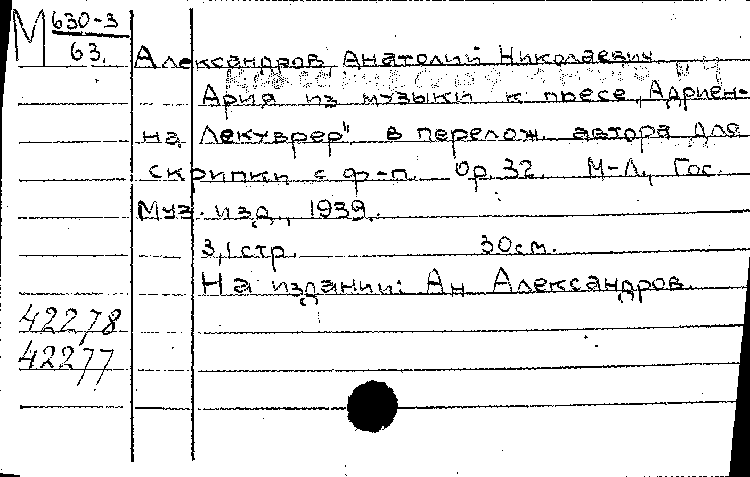 М 630-3
63.
Александров Анатолий Николаевич
Ария из музыки к пьесе „Адриен-
на Лекуврер" в перелож. автора для
скрипки с ф-п. Op. 32. М-Л., Гос.
Муз. изд., 1939.
3,1 стр. 30 см.
На издании: Ан Александров.
42278
42277